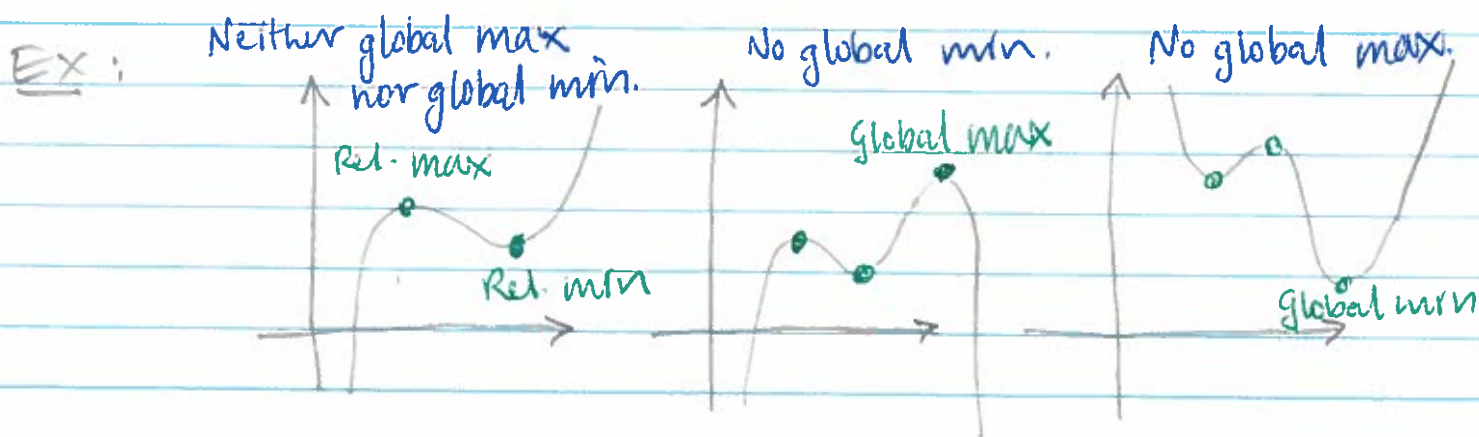 Ex:
Neither global max
nor global min.
Rel. max
Rel. min
No global min.
Global max
No global max.
Global min